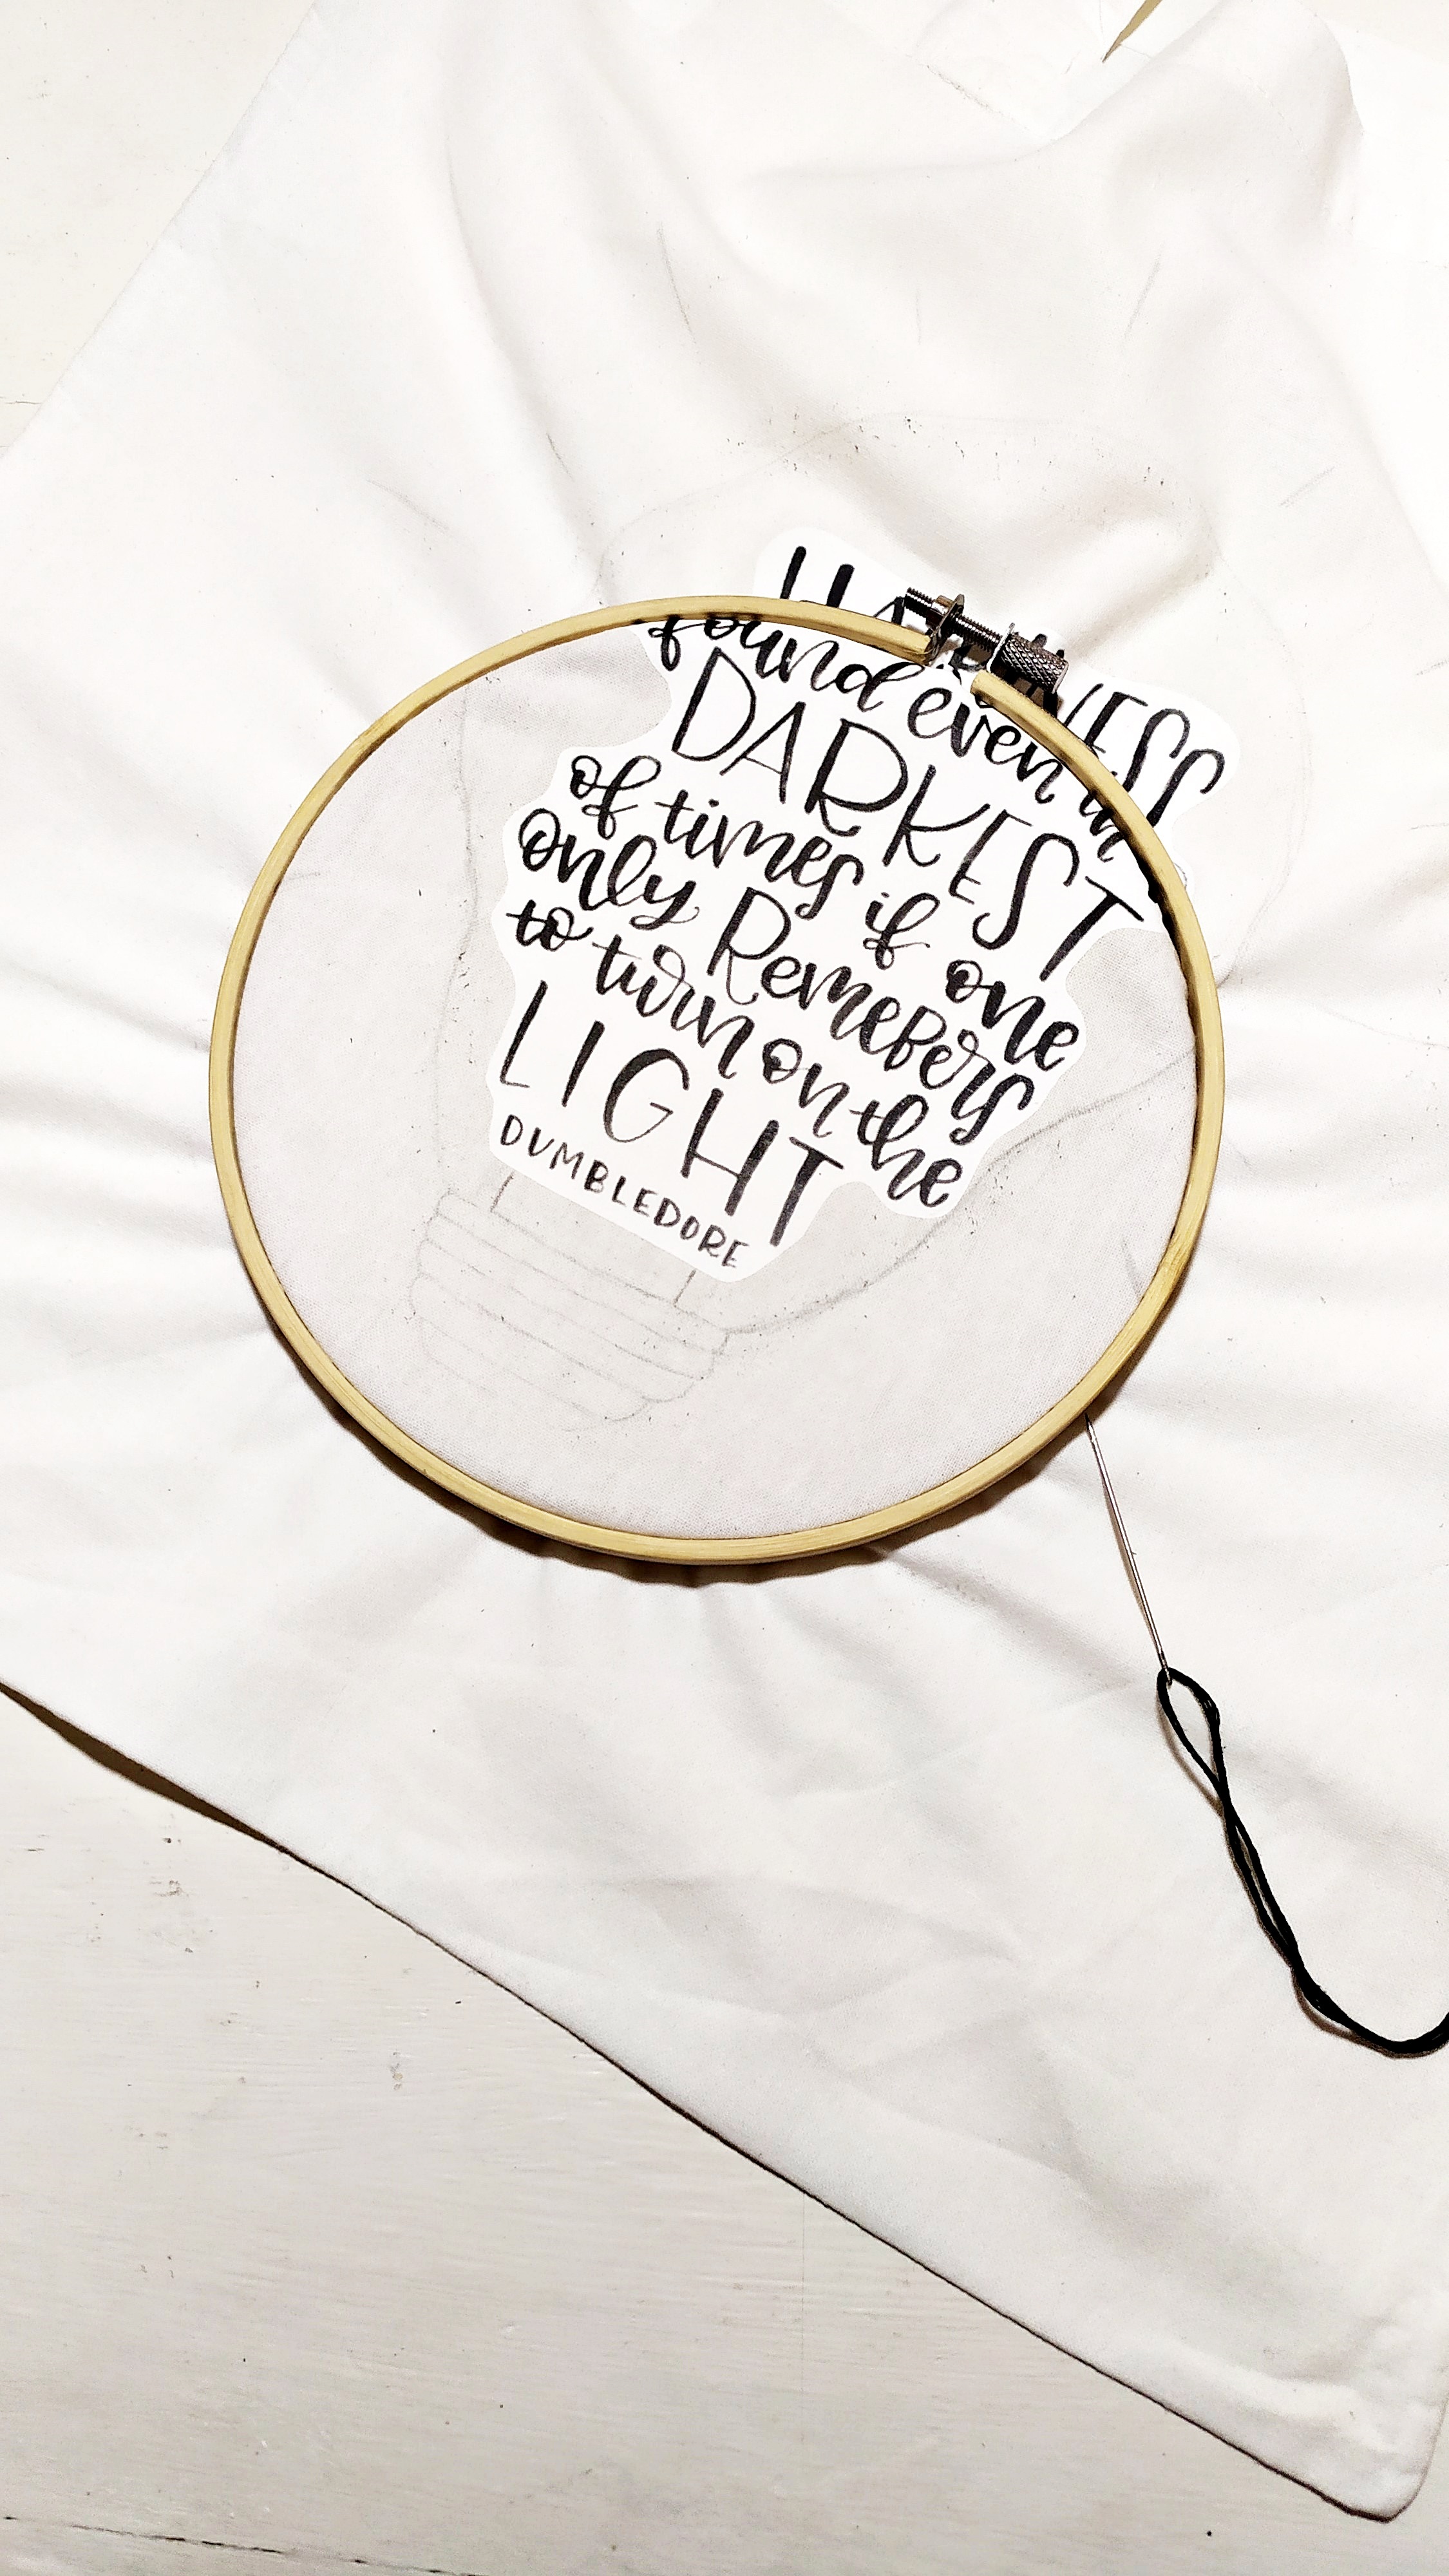 found even in
DARKEST
of times if one
only RemeBers
to turn on the
LIGHT
DUMBLEDORE